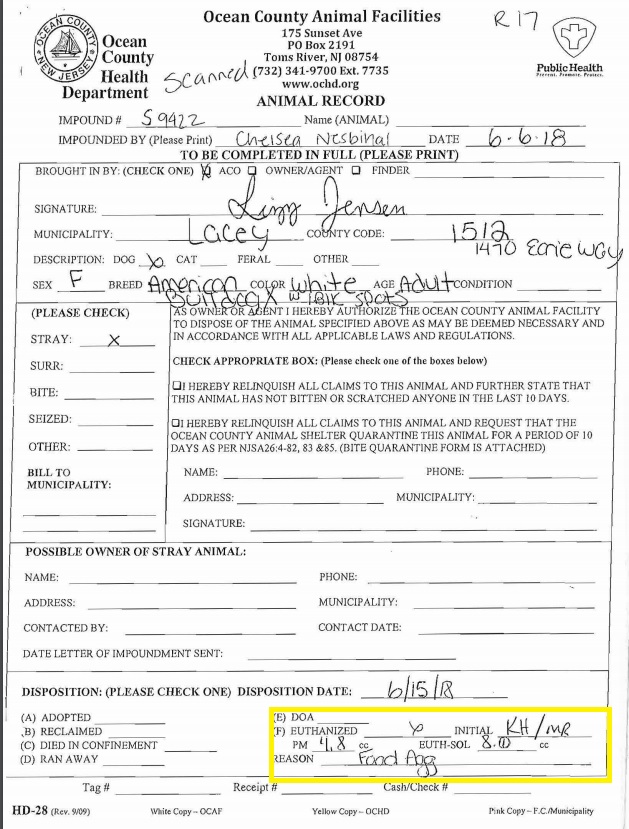 OCEAN COUNTY
NEW JERSEY
Ocean
County
Health
Department
Ocean County Animal Facilities
175 Sunset Ave
PO Box 2191
Toms River, NJ 08754
(732) 341-9700 Ext. 7735
www.ochd.org
ANIMAL RECORD
Scanned
R17
Public Health
Prevent. Promote. Protect.
IMPOUND # 59422 Name (ANIMAL)
IMPOUNDED BY (Please Print) Chelsea DATE 6-6-18
TO BE COMPLETED IN FULL (PLEASE PRINT)
BROUGHT IN BY: (CHECK ONE) ACO OWNER/AGENT FINDER
SIGNATURE: Lizzy Jensen
MUNICIPALITY: Lacey COUNTY CODE: 1512
1470 Way
DESCRIPTION: DOG X CAT FERAL OTHER
SEX F BREED American COLOR White AGE Adult CONDITION
Bulldog X w/ Blk spots
(PLEASE CHECK)
STRAY: X
SURR:
BITE:
SEIZED:
OTHER:
BILL TO
MUNICIPALITY:
AS OWNER OR AGENT I HEREBY AUTHORIZE THE OCEAN COUNTY ANIMAL FACILITY
TO DISPOSE OF THE ANIMAL SPECIFIED ABOVE AS MAY BE DEEMED NECESSARY AND
IN ACCORDANCE WITH ALL APPLICABLE LAWS AND REGULATIONS.
CHECK APPROPRIATE BOX: (Please check one of the boxes below)
I HEREBY RELINQUISH ALL CLAIMS TO THIS ANIMAL AND FURTHER STATE THAT
THIS ANIMAL HAS NOT BITTEN OR SCRATCHED ANYONE IN THE LAST 10 DAYS.
I HEREBY RELINQUISH ALL CLAIMS TO THIS ANIMAL AND REQUEST THAT THE
OCEAN COUNTY ANIMAL SHELTER QUARANTINE THIS ANIMAL FOR A PERIOD OF 10
DAYS AS PER NJSA26:4-82, 83 &85. (BITE QUARANTINE FORM IS ATTACHED)
NAME: PHONE:
ADDRESS: MUNICIPALITY:
SIGNATURE:
POSSIBLE OWNER OF STRAY ANIMAL:
NAME: PHONE:
ADDRESS: MUNICIPALITY:
CONTACTED BY: CONTACT DATE:
DATE LETTER OF IMPOUNDMENT SENT:
DISPOSITION: (PLEASE CHECK ONE) DISPOSITION DATE: 6/15/18
(A) ADOPTED
(B) RECLAIMED
(C) DIED IN CONFINEMENT
(D) RAN AWAY
(E) DOA
(F) EUTHANIZED X INITIAL KH/MR
PM 4.8 cc EUTH-SOL 8.0 cc
REASON Food Agg
Tag # Receipt # Cash/Check #
HD-28 (Rev. 9/09) White Copy – OCAF Yellow Copy – OCHD Pink Copy – F.C./Municipality